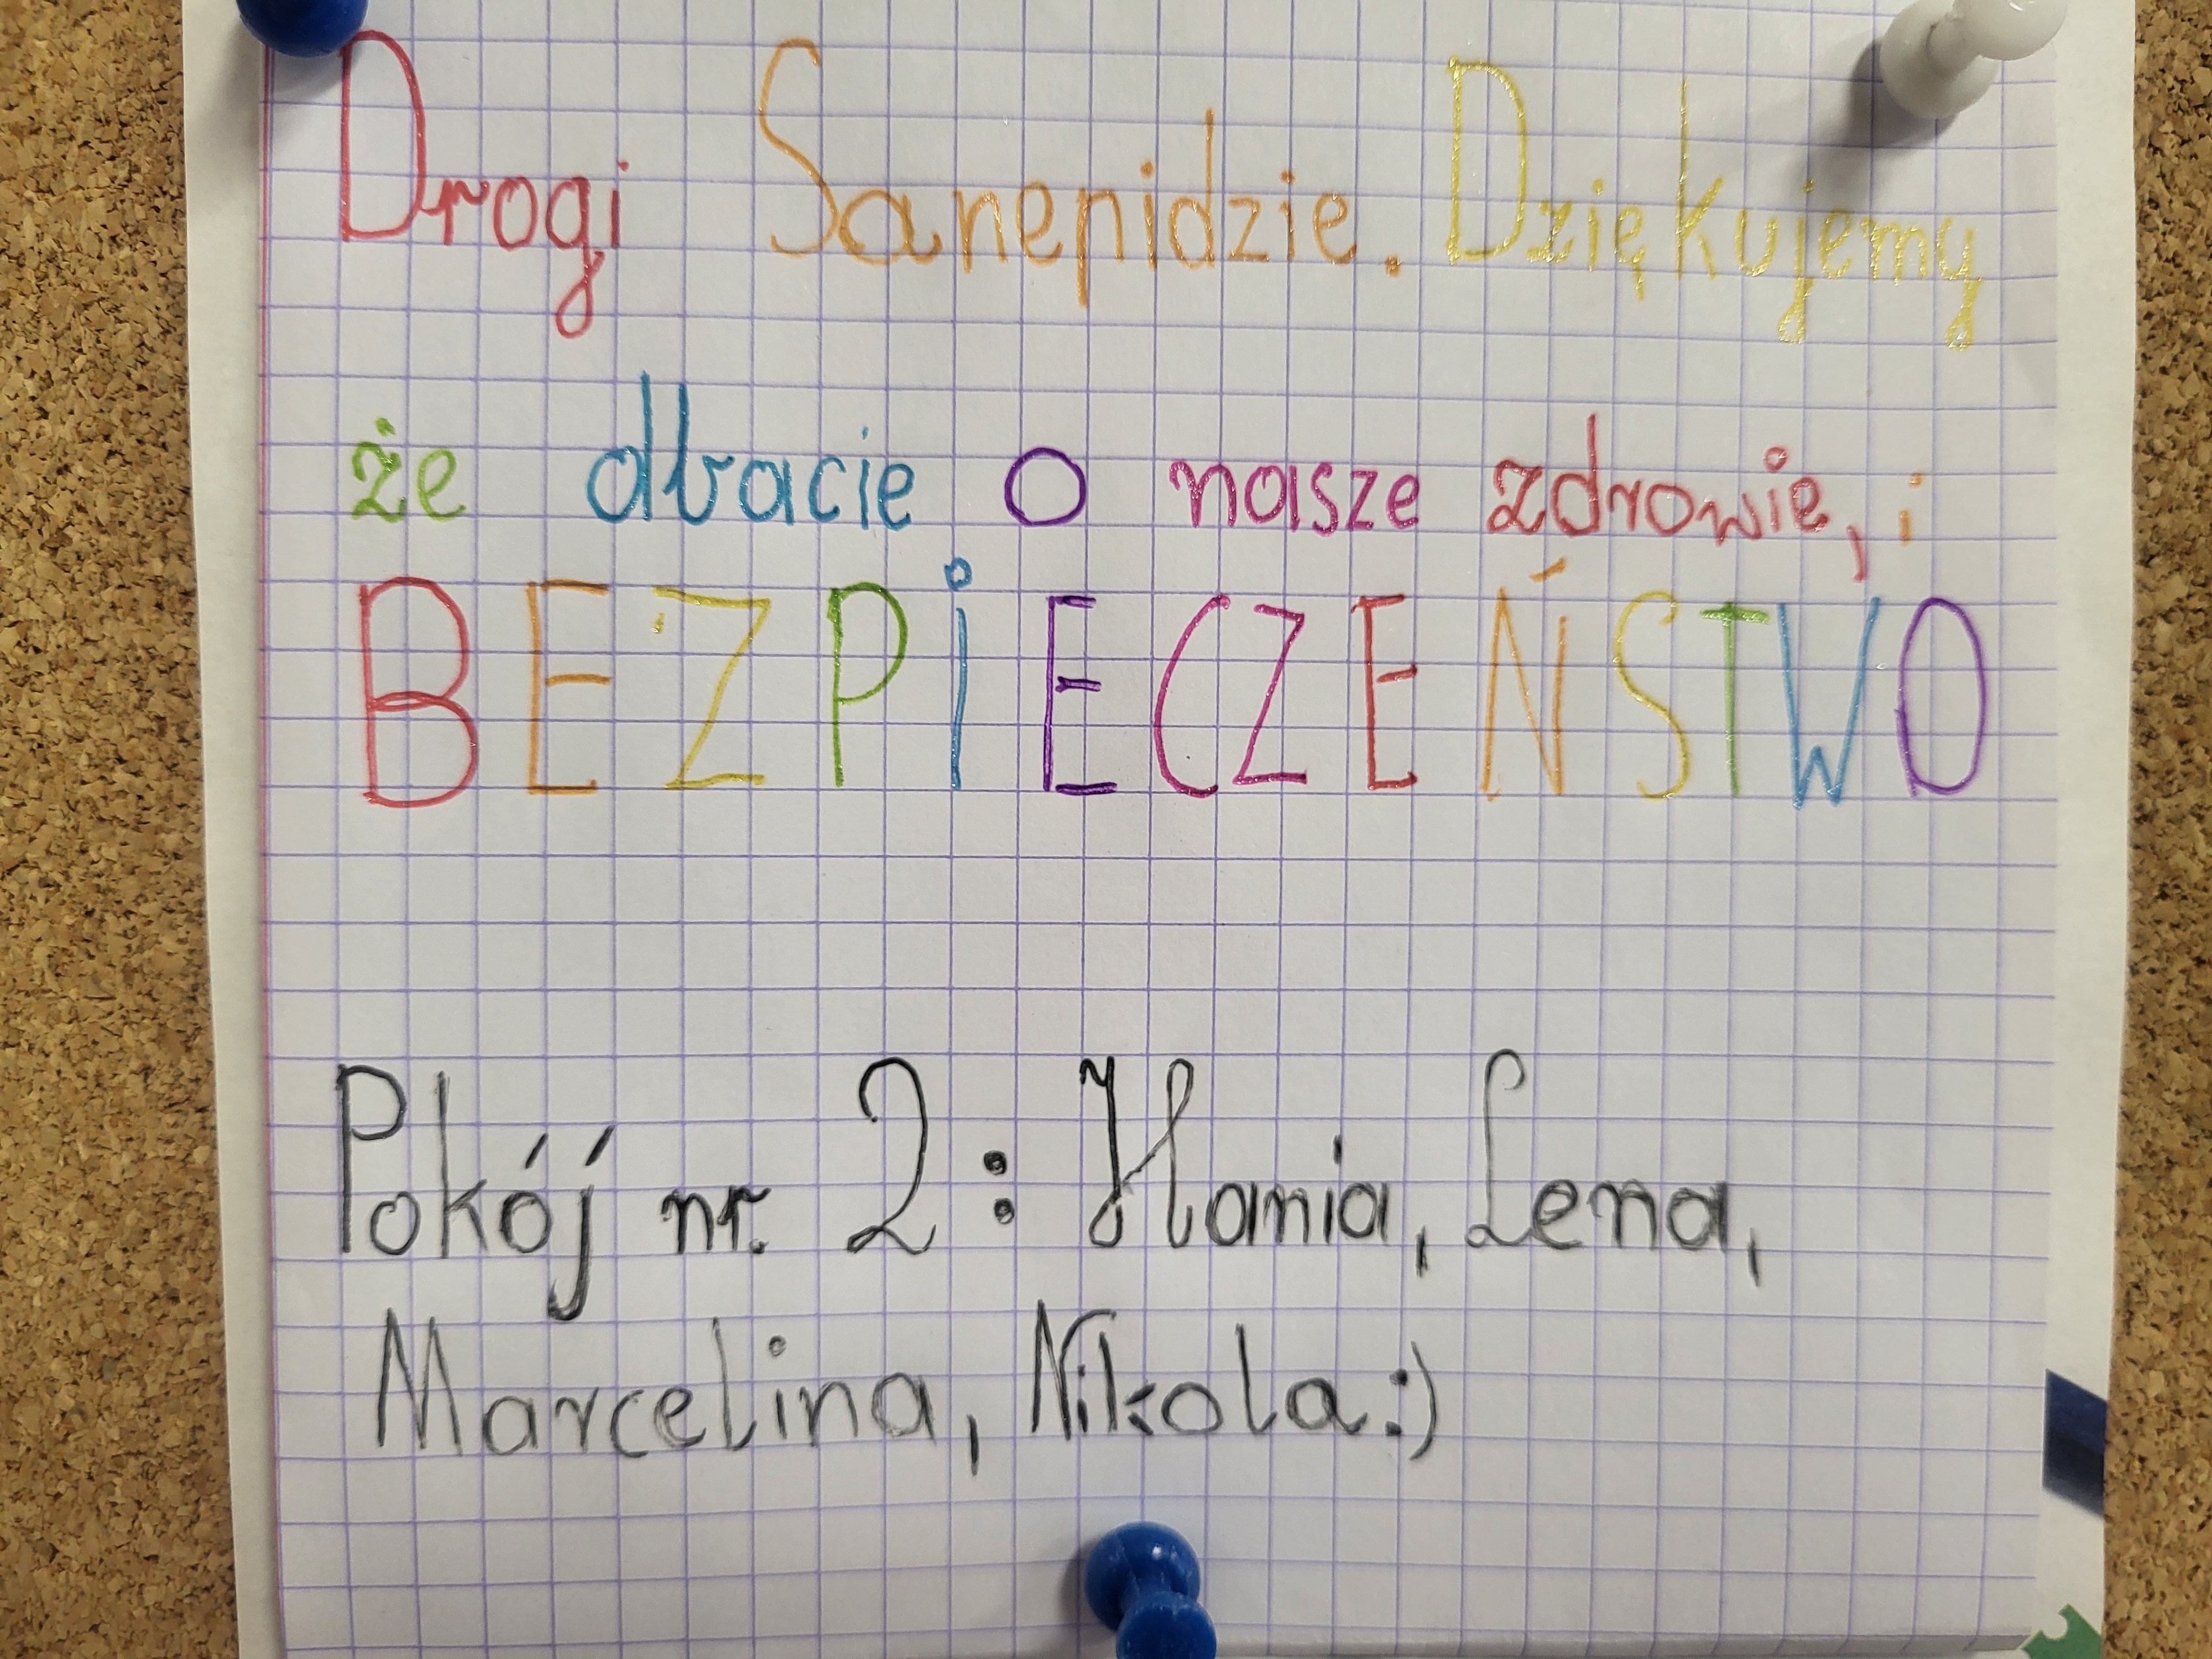 Drogi Sanepidzie. Dziękujemy
że dbacie o nasze zdrowie, i
BEZPIECZEŃSTWO
Pokój nr. 2: Hania, Lena,
Marcelina, Nikola:)